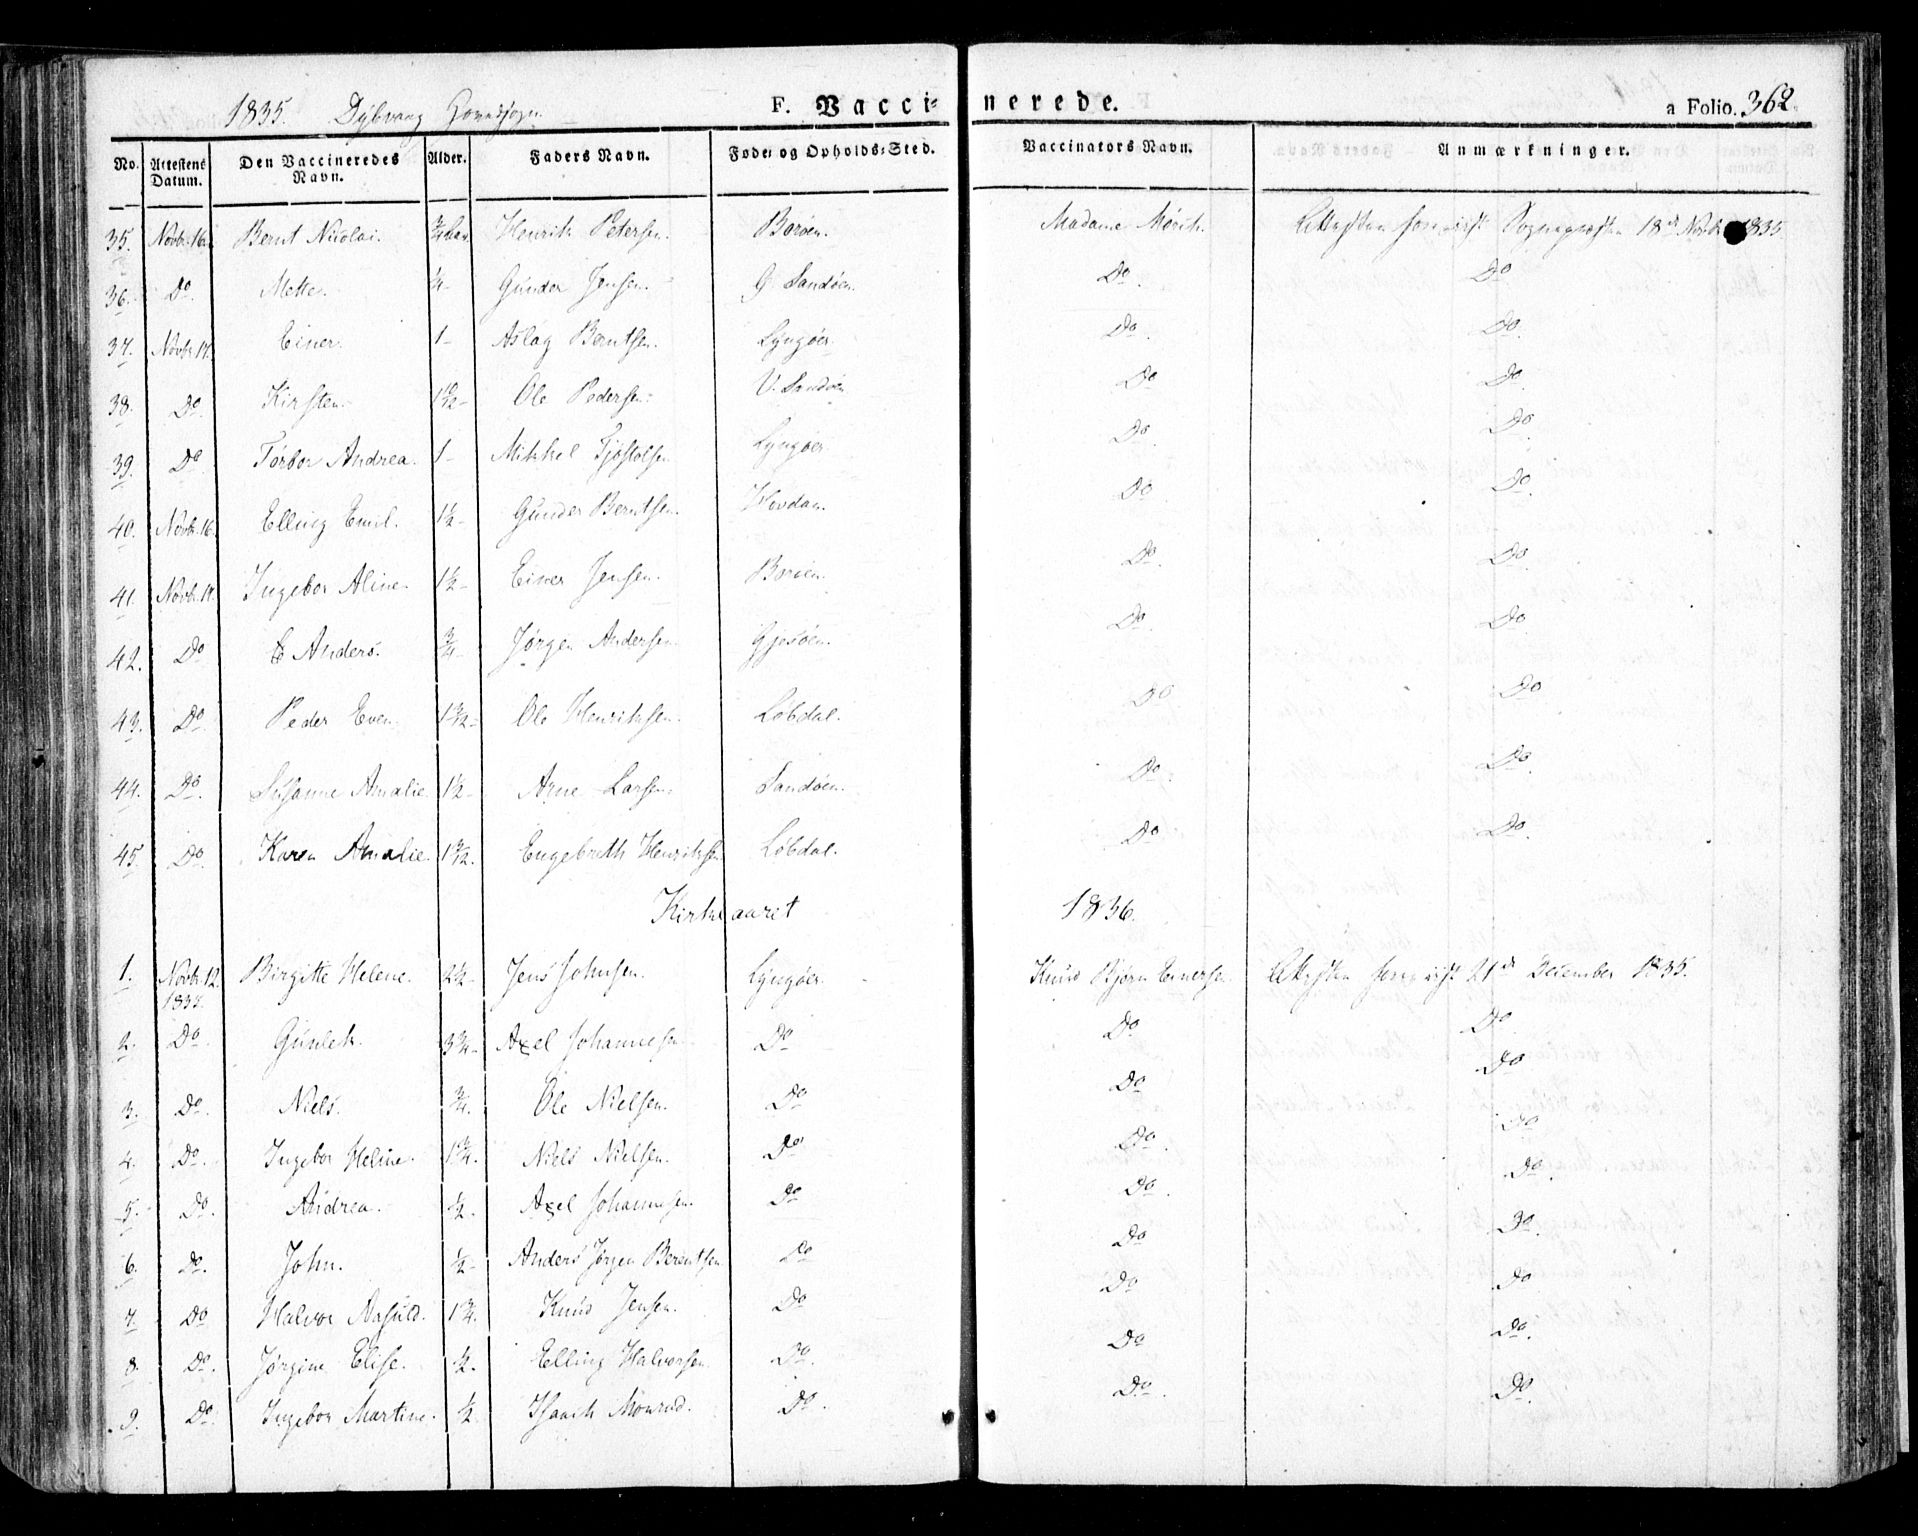 1835. Dybvaag F. Vaccinerede. a Folio. 362.
No. Attestens Datum. Den Vaccineredes Navn. Alder. Faders Navn. Føde- og Opholds-Sted. Vaccinators Navn. Anmærkninger.
35. Novbr. 16. Bernt Nicolai. 3/4 Aar Henrik Petersen. Borøen. Madame Mørch. Attesten foreviist Sognepræsten 18de Novbr. 1835.
36. Do. Mette. 1/4 Gunder Jensen. G. Sandøen. Do. Do.
37. Novbr. 17. Einer. 1 Aslag Berntsen. Lyngøer. Do. Do.
38. Do. Kirsten. Ole Pedersen. V. Sandøen Do Do.
39. Do Torbor Andrea. 1 Mikkel Tjøstolsen Lyngøer Do. Do.
40. Novbr. 16. Elling Emil. 1 1/2 Gunder Berntsen. Hovdan. Do. Do.
41. Novbr. 17. Ingebor Aline. 1 1/2 Einer Jensen. Borøen. Do. Do.
42. Do Anders. 3/4 Jørgen Andersen. Gjesøen. Do. Do.
43. Do Peder Even. Ole Henriksen. Løbdal. Do Do
44. Do. Susanne Amalie. 1 1/2 Arne Larsen. Sandøen. Do. Do.
45. Do. Karen Amalie. Engebreth Henriksen Løbdal. Do Do.
Kirkeaaret 1836.
1. Novbr. 12. Birgitte Helene. 2 1/2 Jens Johnsen. Lyngøer. Knud Bjørn Einersen. Attesten foreviist 21de December 1835.
1834.
2. Do. Gunlek. 3 3/4 Axel Johannesen Do Do Do
3. Do. Niels. 3/4. Ole Nielsen. Do Do Do
4. Do. Ingebor Heline. 1 3/4. Niels Nielsen. Do Do. Do
5. Do. Andrea. 1/2. Axel Johannesen. Do Do. Do.
6. Do. John. 1/2 Anders Jørgen Berentsen Do Do Do.
7. Do Halvor Nafuld. 1 3/4. Knud Jensen. Do Do Do
8. Do. Jørgine Elise. 1/2. Elling Halvorsen. Do. Do Do.
9. Do. Ingebor Martine. 1/2 Isaach Monrad. Do. Do. Do.